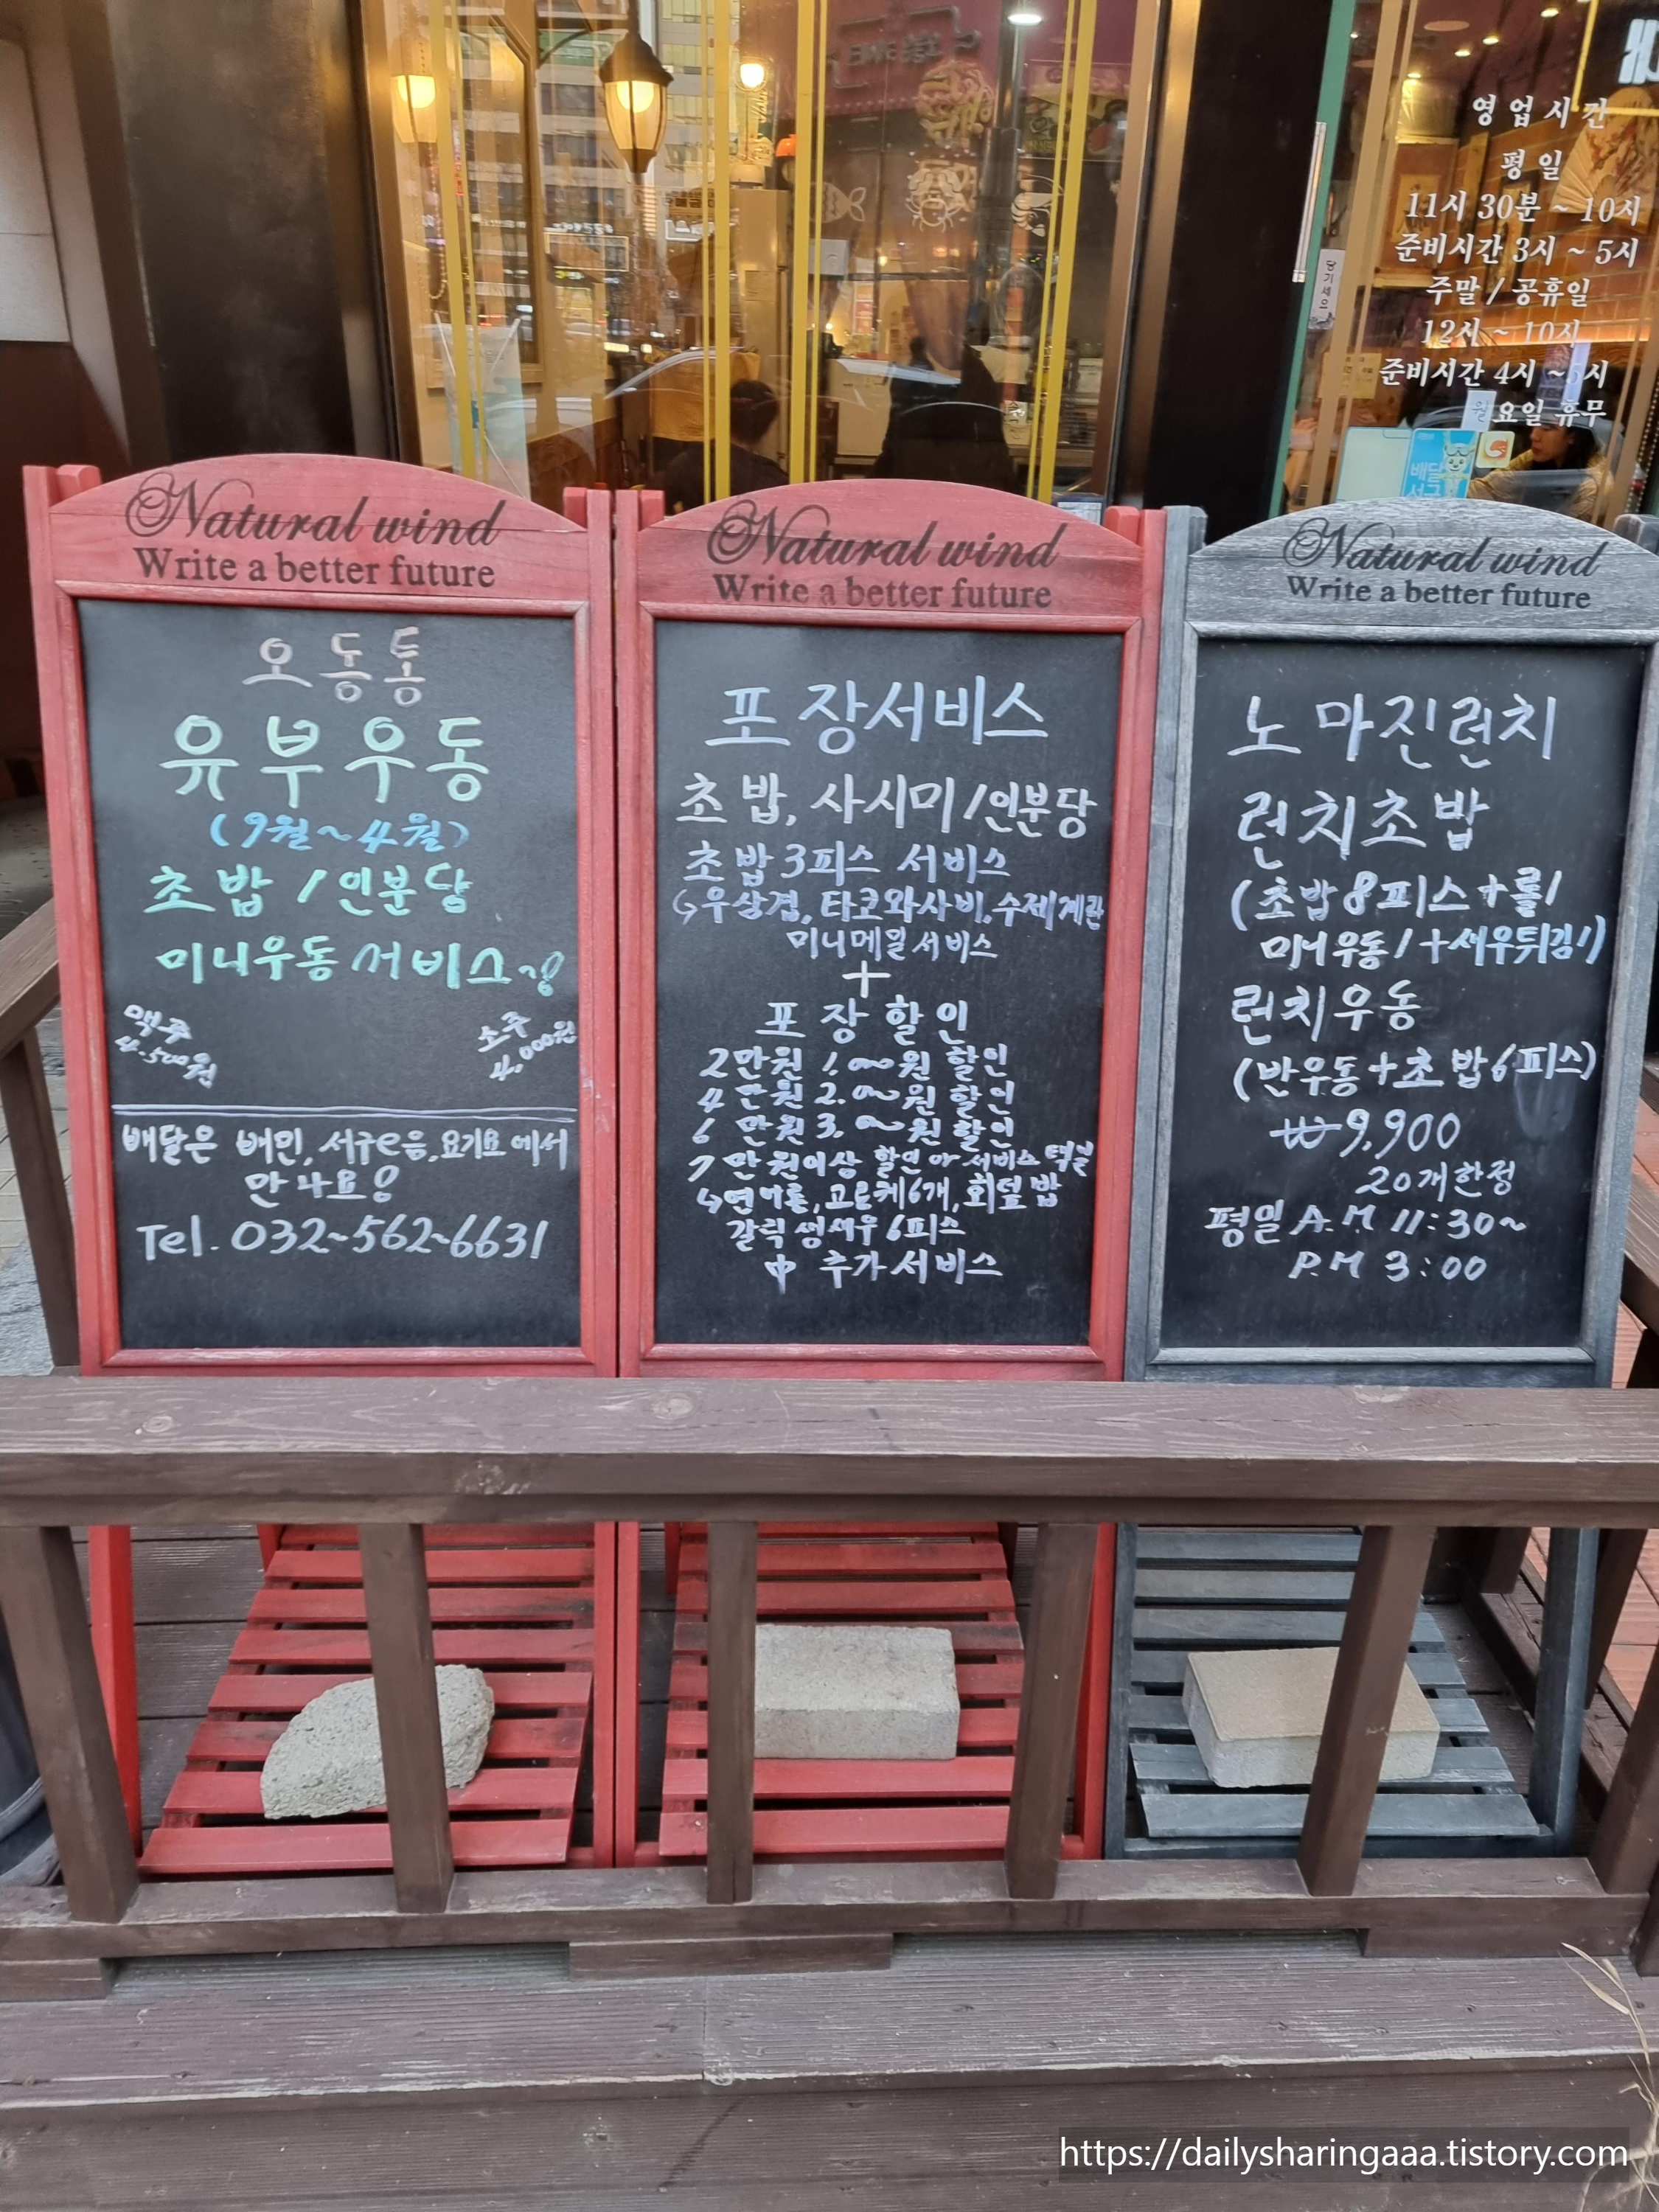 영업시간
평일
11시 30분 ~ 10시
준비시간 3시 ~ 5시
주말 / 공휴일
12시 ~ 10시
준비시간 4시 ~ 5시
월요일 휴무
당기세요
배달
Natural wind
Write a better future
오동통
유부우동
(9월~4월)
초밥 / 인분당
미니우동 서비스~!
맥주
4.500원
소주
4.000원
배달은 배민, 서구e음, 요기요에서
만나요!
Tel. 032-562-6631
Natural wind
Write a better future
포장서비스
초밥, 사시미/인분당
초밥 3피스 서비스
↳우삼겹, 타코와사비, 수제계란
미니메밀 서비스
+
포장할인
2만원 1.000원 할인
4만원 2.000원 할인
6만원 3.000원 할인
7만원이상 할인 or 서비스 택일
↳연어롤, 고로케6개, 회덮밥
갈릭생새우 6피스
中 추가서비스
Natural wind
Write a better future
노마진런치
런치초밥
(초밥 8피스 + 롤1
미니우동1 + 새우튀김1)
런치우동
(반우동 + 초밥 6피스)
₩9,900
20개한정
평일 A.M 11:30~
P.M 3:00
https://dailysharingaaa.tistory.com